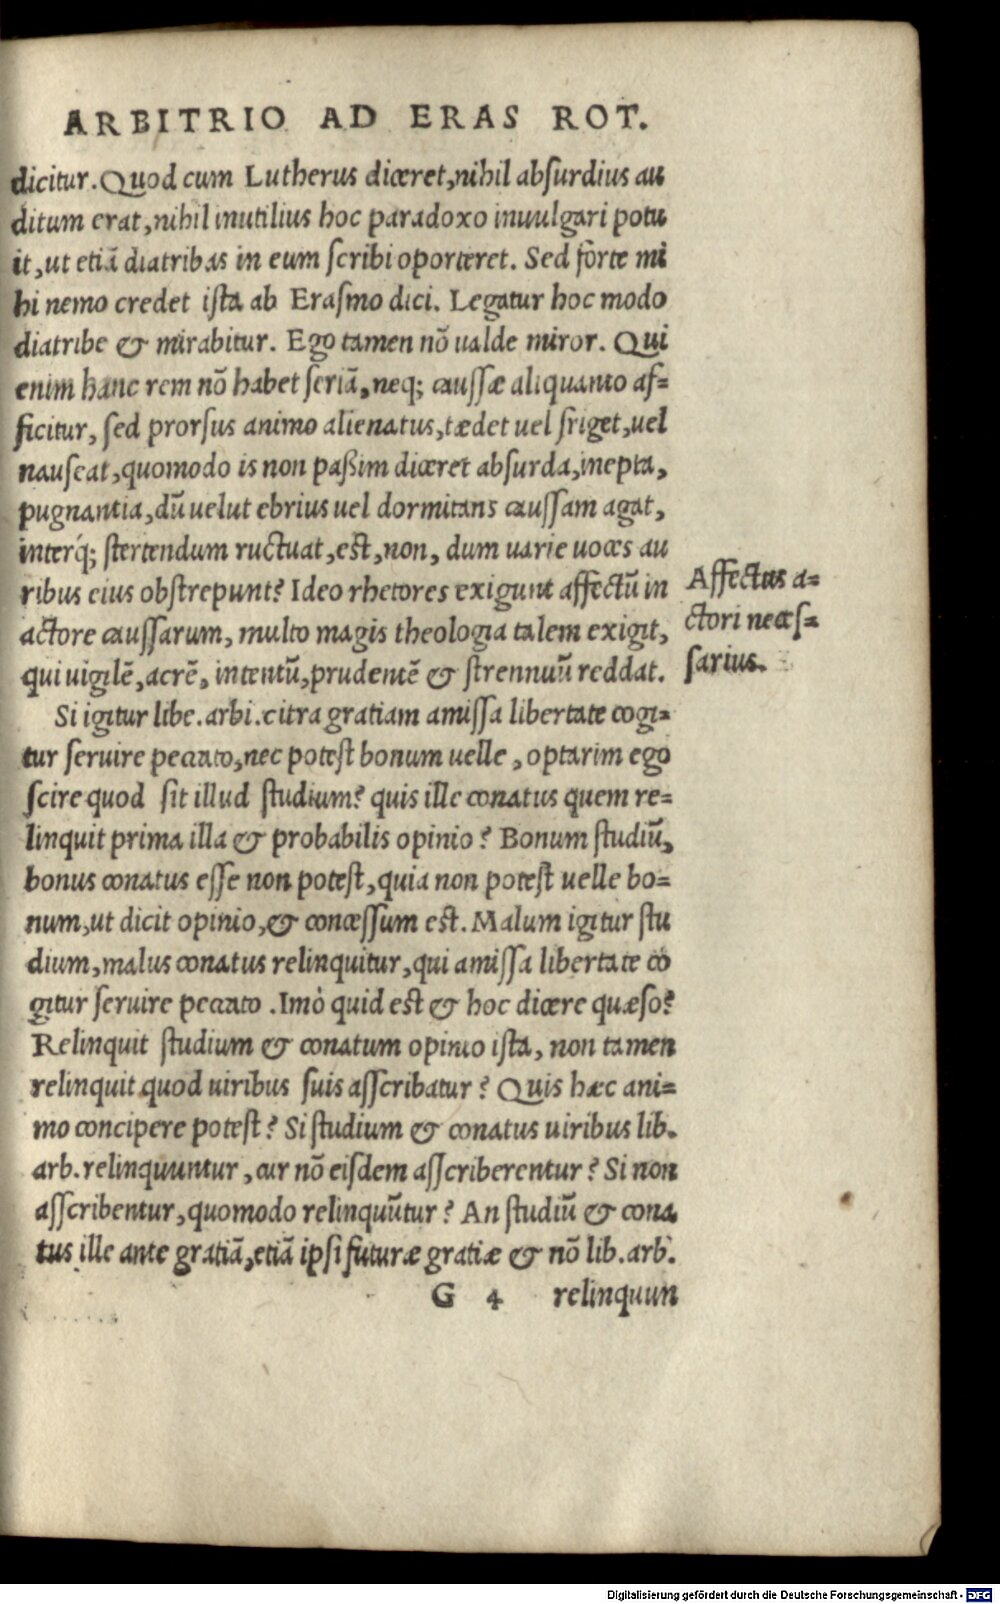 ARBITRIO AD ERAS ROT.
dicitur. Quod cum Lutherus diceret, nihil absurdius au
ditum erat, nihil inutilius hoc paradoxo inuulgari potu
it, ut etiã diatribas in eum scribi oporteret. Sed forte mi
hi nemo credet ista ab Erasmo dici. Legatur hoc modo
diatribe & mirabitur. Ego tamen nõ ualde miror. Qui
enim hanc rem nõ habet seriã, neq; caussæ aliquanto af=
ficitur, sed prorsus animo alienatus, tædet uel friget, uel
nauseat, quomodo is non paßim diceret absurda, inepta,
pugnantia, dũ uelut ebrius uel dormitans caussam agat,
interq́; stertendum ructuat, est, non, dum uarie uoces au
ribus eius obstrepunt? Ideo rhetores exigunt affectũ in
actore caussarum, multo magis theologia talem exigit,
qui uigilẽ, acrẽ, intentũ, prudentẽ & strennuũ reddat.
Si igitur libe. arbi. citra gratiam amissa libertate cogi=
tur seruire peccato, nec potest bonum uelle, optarim ego
scire quod sit illud studium? quis ille conatus quem re=
linquit prima illa & probabilis opinio? Bonum studiũ,
bonus conatus esse non potest, quia non potest uelle bo=
num, ut dicit opinio, & concessum est. Malum igitur stu
dium, malus conatus relinquitur, qui amissa libertate co
gitur seruire peccato. Imò quid est & hoc dicere quæso?
Relinquit studium & conatum opinio ista, non tamen
relinquit quod uiribus suis asscribatur? Quis hæc ani=
mo concipere potest? Si studium & conatus uiribus lib.
arb. relinquuntur, cur nõ eisdem asscriberentur? Si non
asscribentur, quomodo relinquũtur? An studiũ & cona
tus ille ante gratiã, etiã ipsi futuræ gratiæ & nõ lib. arb.
G 4 relinquun
Affectus a=
ctori neces=
sarius.
Digitalisierung gefördert durch die Deutsche Forschungsgemeinschaft - DFG